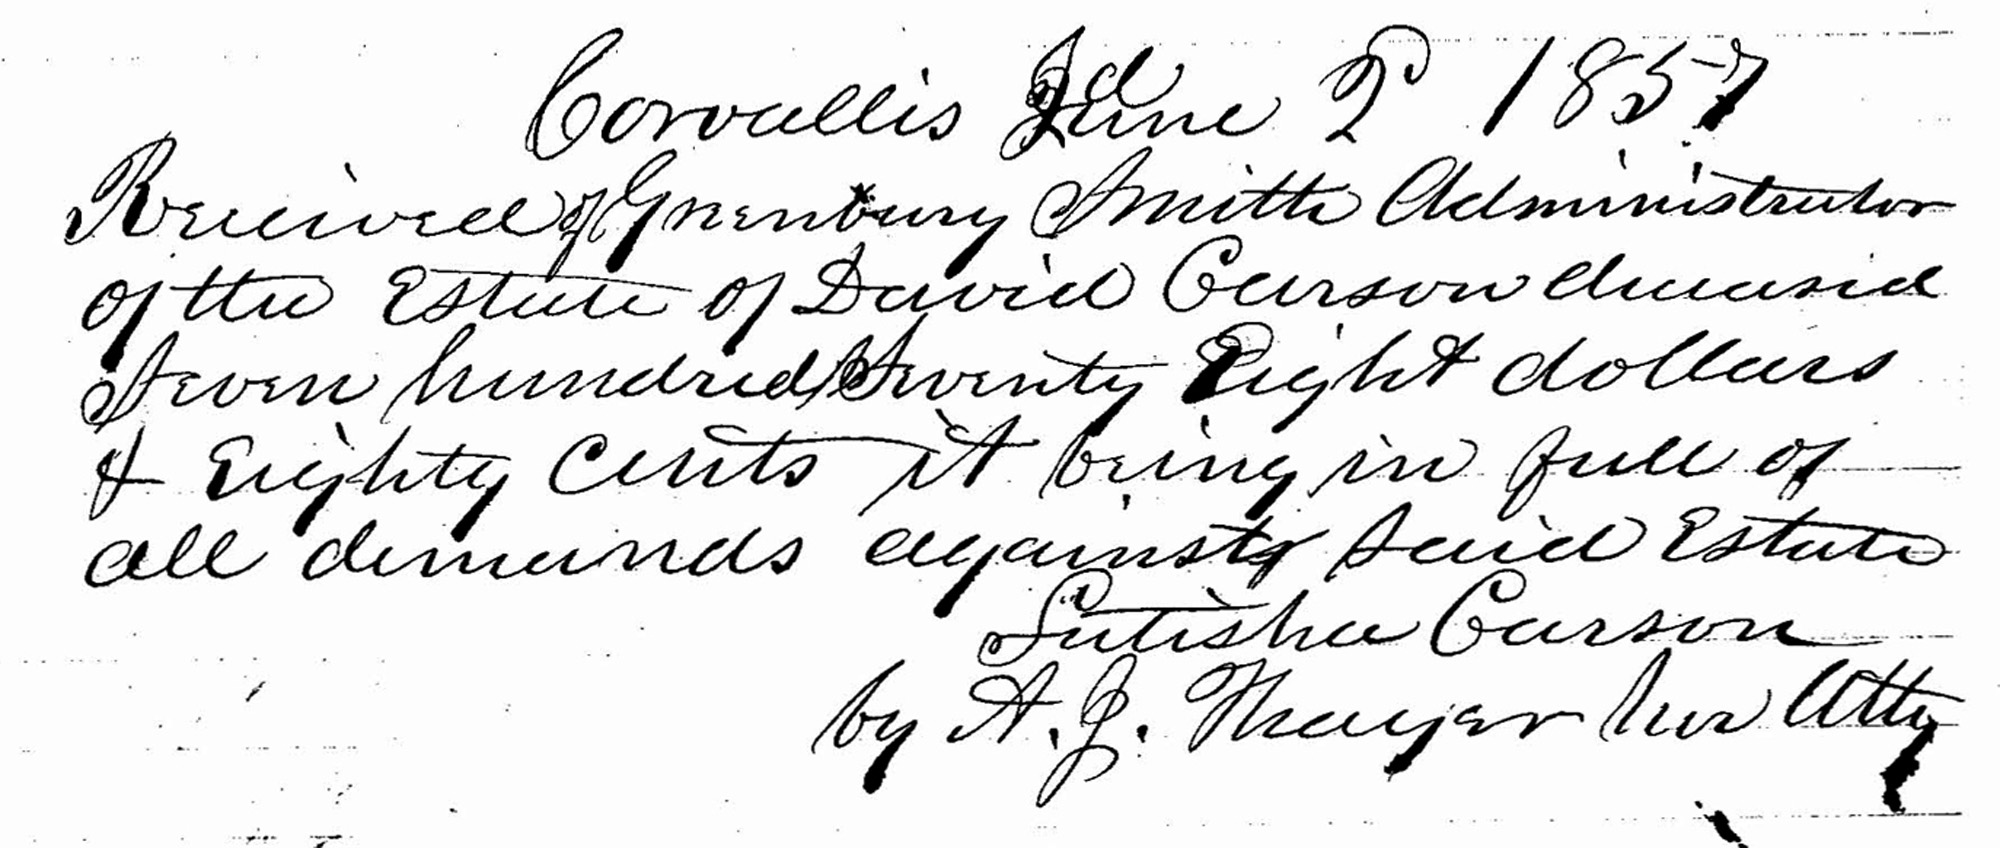 Corvallis June 2d 1857
Received of Greenbury Smith Administrator
of the Estate of David Carson deceased
Seven hundred Seventy Eight dollars
& Eighty Cents it being in full of
all demands against Said Estate
Letisha Carson
by A. J. Thayer her Atty